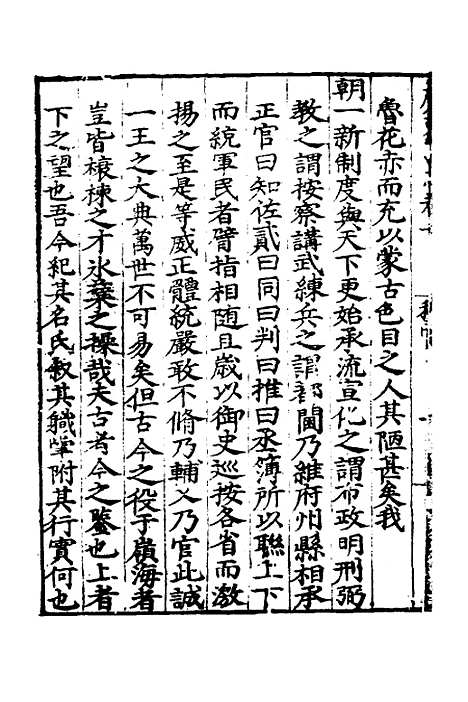 魯花赤而充以蒙古色目之人其陋甚矣我
朝一新制度與天下更始承流宣化之謂布政明刑弼
教之謂按察講武練兵之謂都閫乃維府州縣相承
正官曰知佐貳曰同曰判曰推曰丞簿所以聯上下
而統軍民者臂指相随且歲以御史巡按各省而激
揚之至是等威正體統嚴敢不脩乃輔乂乃官此誠
一王之大典萬世不可易矣但古今之役于嶺海者
豈皆榱棟之才氷蘖之操哉夫古者今之鑒也上者
下之望也吾今紀其名氏叙其職掌附其行實何也